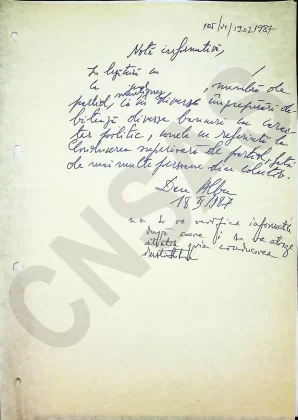 105/VI/19.02.1987
Notă informativă,
În legătură cu
la, membră de
partid, că în diverse împrejurări de-
bitează diverse bancuri cu carac-
ter politic, unele cu referință la
Conducerea superioară de partid, față
de mai multe persoane din colectiv.
Dan Albu
18 II 1987
se va verifica informația
după care și se va atrage
atenția prin conducerea
CNSAS